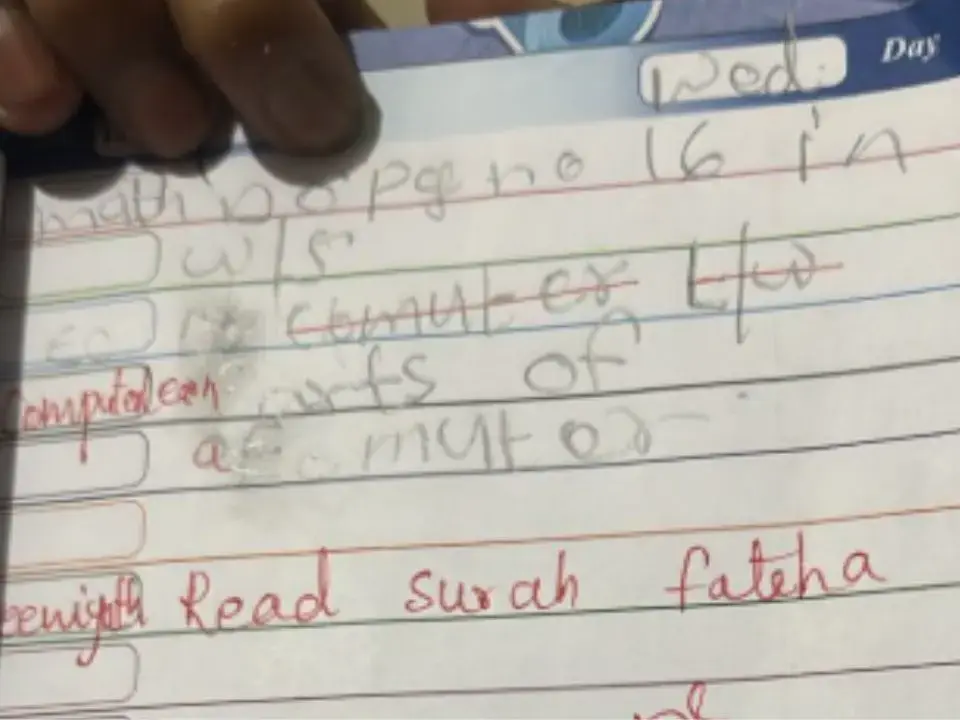 Wed. Day
math no pg no 16 in
w/s
comuter L/w
Computer Learn parts of
a comutor
Read surah fateha